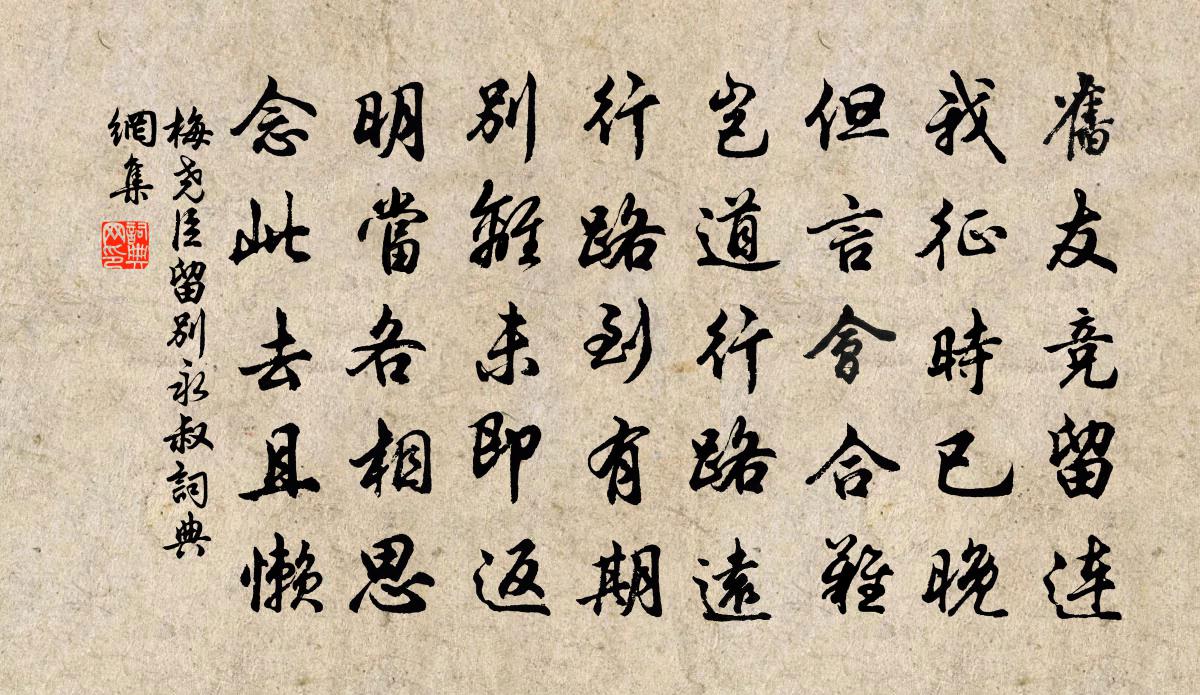 舊友竞留連
我征時已晚
但言會合難
岂道行路遠
行路到有期
别離未即返
明當各相思
念此去且懒
梅尧臣留别永叔詞典
網集
詞典
网印